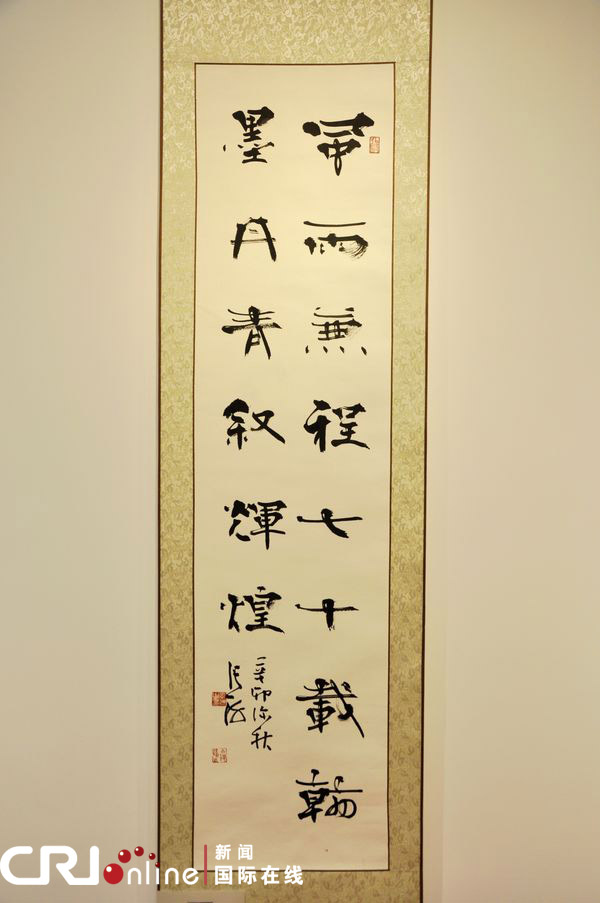 風雨兼程七十載翰
墨丹青叙輝煌
辛卯深秋
CRI online
新闻
国际在线